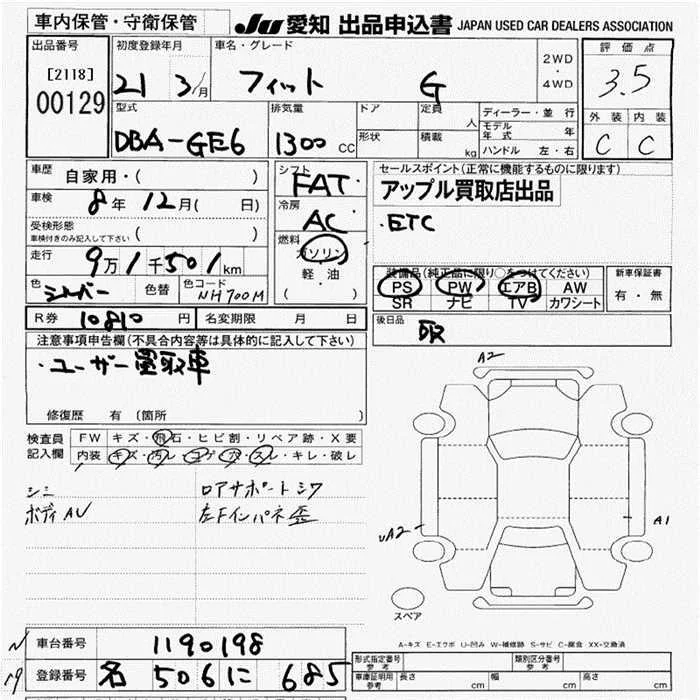 車内保管・守衛保管
JU 愛知 出品申込書 JAPAN USED CAR DEALERS ASSOCIATION
出品番号
[2118]
00129
初度登録年月
21 3/月
車名・グレード
フィット G
2WD
・
4WD
評価点
3.5
外装 内装
C C
型式
DBA-GE6
排気量
1300 CC
ドア
形状
定員
人
積載
kg
ディーラー・並行
モデル年式 年
ハンドル 左・右
車歴 自家用・( )
車検 8年 12月( 日)
受検形態
車検付きのみ記入して下さい ( )
走行 9万1千501km
色 シルバー 色替 色コード NH700M
シフト
FAT
冷房
AC
燃料
ガソリン
・
軽・油
( )
セールスポイント(正常に機能するものに限ります)
アップル買取店出品
・ETC
装備品(純正品に限り○をつけてください)
PS PW エアB AW
SR ナビ TV カワシート
新車保証書
有・無
R券 10810 円 名変期限 月 日
後日品
取
注意事項申告欄(不具合内容等は具体的に記入して下さい)
・ユーザー買取車
修復歴 有 (箇所 )
検査員
記入欄
FW キズ・飛石・ヒビ割・リペア跡・X要
内装 キズ・汚レ・コゲ・穴・スレ・キレ・破レ
シミ
ボディAU
ロアサポートシワ
左Fインパネ歪
A2
UA2
A1
スペア
A-キズ E-エクボ U-凹み W-補修跡 S-サビ C-腐食 XX-交換済
車台番号 1190198
登録番号 名 506 に 685
形式指定番号
参考
類別区分番号
参考
車庫証明用
参考
長さ cm 幅 cm 高さ cm